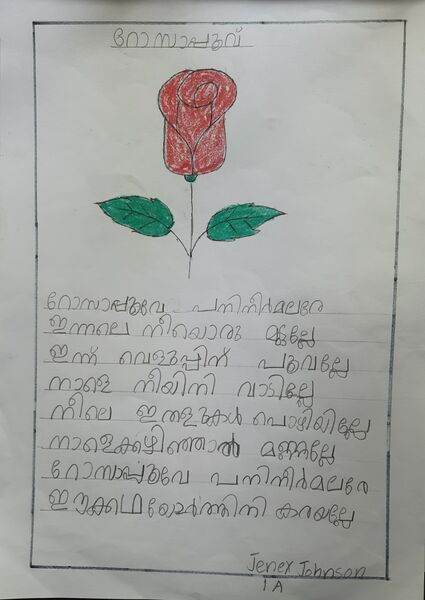 റോസാപ്പൂവ്
റോസാപ്പൂവേ പനിനീർമലരേ
ഇന്നലെ നീയൊരു മുട്ടല്ലേ
ഇന്ന് വെളുപ്പിന് പൂവല്ലേ
നാളെ നീയിനി വാടില്ലേ
നീലെ ഇതളുകൾ പൊഴിയില്ലേ
നാളെക്കഴിഞ്ഞാൽ മണ്ണല്ലേ
റോസാപ്പൂവേ പനിനീർമലരേ
ഈക്കഥയോർത്തിനി കരയല്ലേ
Jenex Johnson
1 A